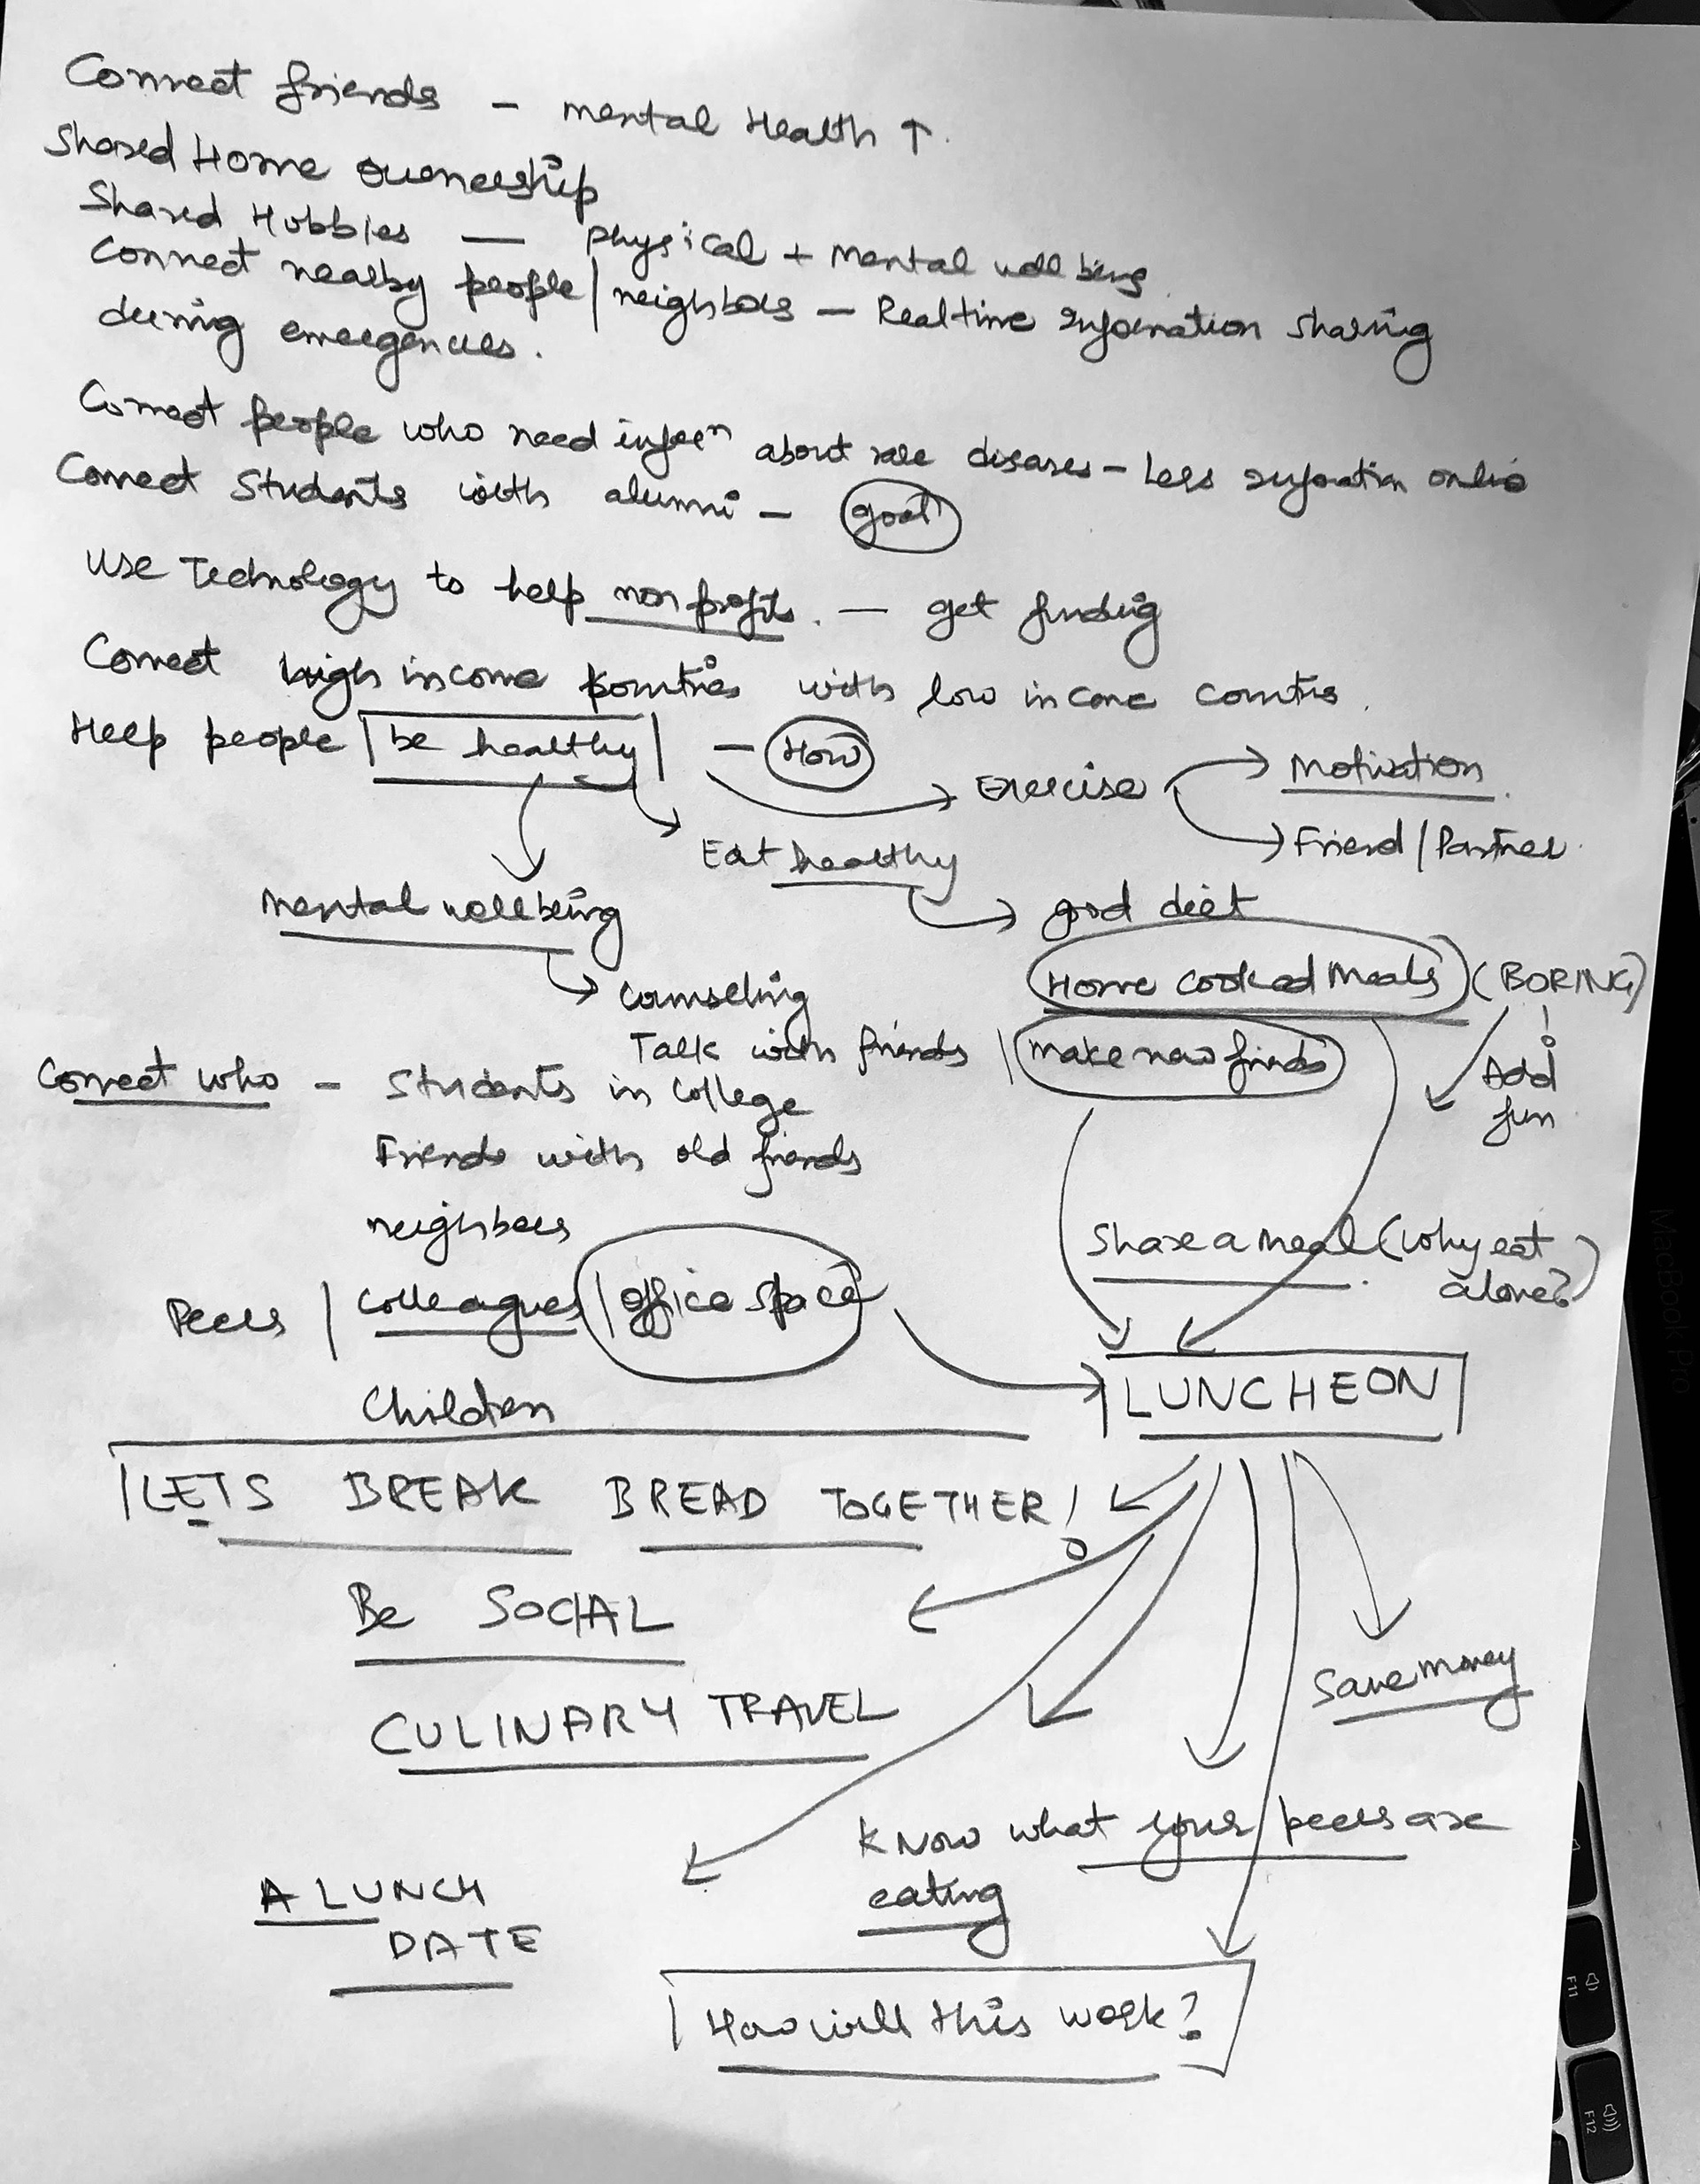 Connect friends – mental Health ↑.
Shared Home ownership
Shared Hobbies — physical + mental well being
Connect nearby people / neighbors – Realtime information sharing
during emergencies.
Connect people who need inforn about rare diseases – Less information online
Connect students with alumni – goal
Use Technology to help non profits. — get funding
Connect high income countries with low income countries.
Help people | be healthy | — How
Exercise → Motivation
→ Friend / Partner
Eat healthy
mental wellbeing
→ good diet
Home cooked meals (BORING)
→ Counseling
Talk with friends / make new friends
! Add
fun
Connect who – Students in college
Friends with old friends
neighbors
Share a meal (why eat
alone?)
Peers / colleagues / office space
LUNCHEON
Children
LETS BREAK BREAD TOGETHER!
Be SOCIAL
Save money
CULINARY TRAVEL
Know what your peers are
eating
A LUNCH
DATE
How will this work?
MacBook Pro
F11
F12